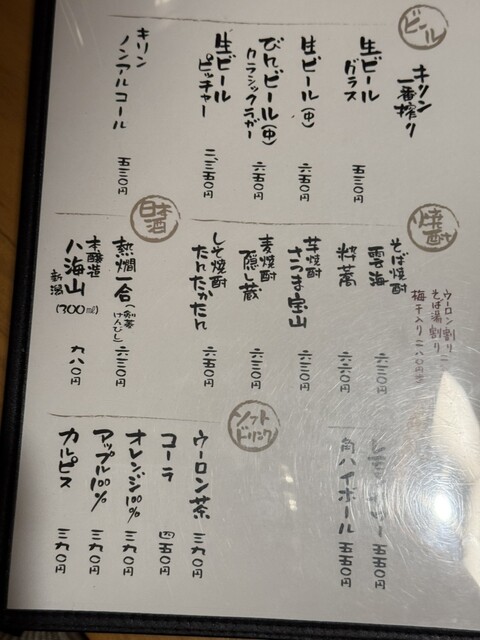 ビール
キリン
一番搾り
生ビール
グラス
五三〇円
生ビール(中)
六五〇円
びんビール(中)
クラシックラガー
六五〇円
生ビール
ピッチャー
二、三五〇円
キリン
ノンアルコール
五三〇円
焼酎
ウーロン割り
そば湯割り
梅干入り
そば焼酎
雲海
六三〇円
粋蕎
六六〇円
芋焼酎
さつま宝山
六三〇円
麦焼酎
隠し蔵
六三〇円
しそ焼酎
たんたかたん
六五〇円
日本酒
熱燗一合
(剣菱
けんびし)
六三〇円
本醸造
八海山
新潟
(300㎖)
九八〇円
五五〇円
角ハイボール
五五〇円
ソフト
ドリンク
ウーロン茶
三九〇円
コーラ
四五〇円
オレンジ100%
三九〇円
アップル100%
三九〇円
カルピス
三九〇円